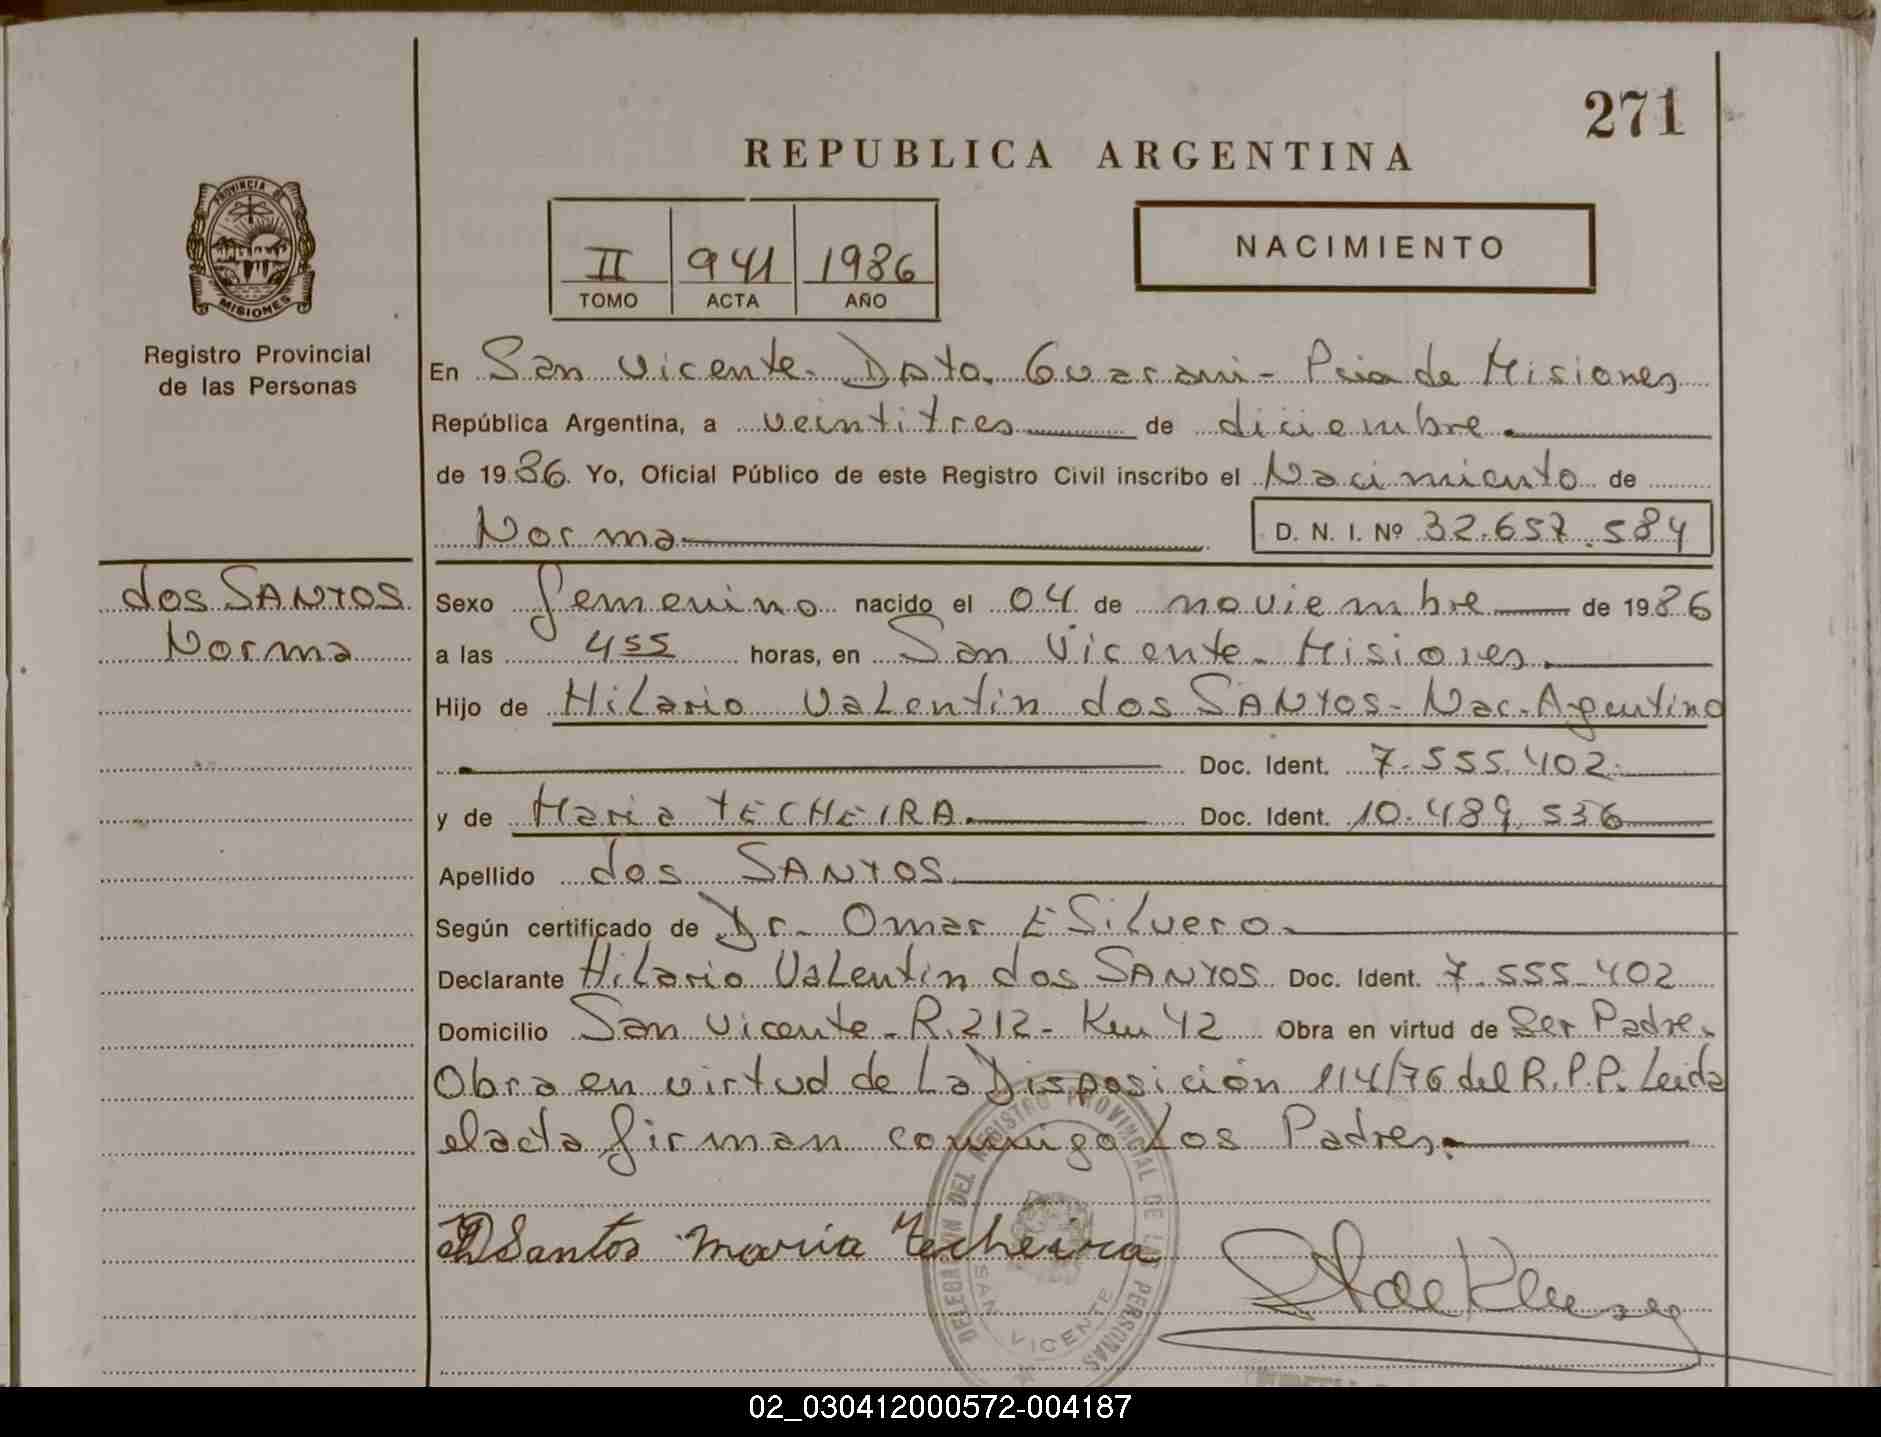 271
REPUBLICA ARGENTINA
PROVINCIA DE
MISIONES
II 941 1986
TOMO ACTA AÑO
NACIMIENTO
Registro Provincial
de las Personas
En San Vicente. Dpto. Guarani - Pcia de Misiones
República Argentina, a veintitres de diciembre.
de 1986. Yo, Oficial Público de este Registro Civil inscribo el Nacimiento de
Norma D. N. I. Nº 32.657.584
dos SANTOS
Norma
Sexo femenino nacido el 04 de noviembre de 1986
a las 4 55 horas, en San Vicente. Misiones.
Hijo de Hilario Valentin dos SANTOS - Nac. Agentino
Doc. Ident. 7.555.402
y de Maria TECHEIRA. Doc. Ident. 10.489.536
Apellido dos SANTOS
Según certificado de Dr. Omar E Silvero
Declarante Hilario Valentin dos SANTOS Doc. Ident. 7.555.402
Domicilio San Vicente - R. 212 - Km 42 Obra en virtud de Ser Padre.
Obra en virtud de La Disposición 114/76 del R.P.P. Leida
el acta firman conmigo Los Padres.
DSantos Maria Techeira
DELEGACION DEL REGISTRO PROVINCIAL DE LAS PERSONAS
SAN VICENTE
02_030412000572-004187